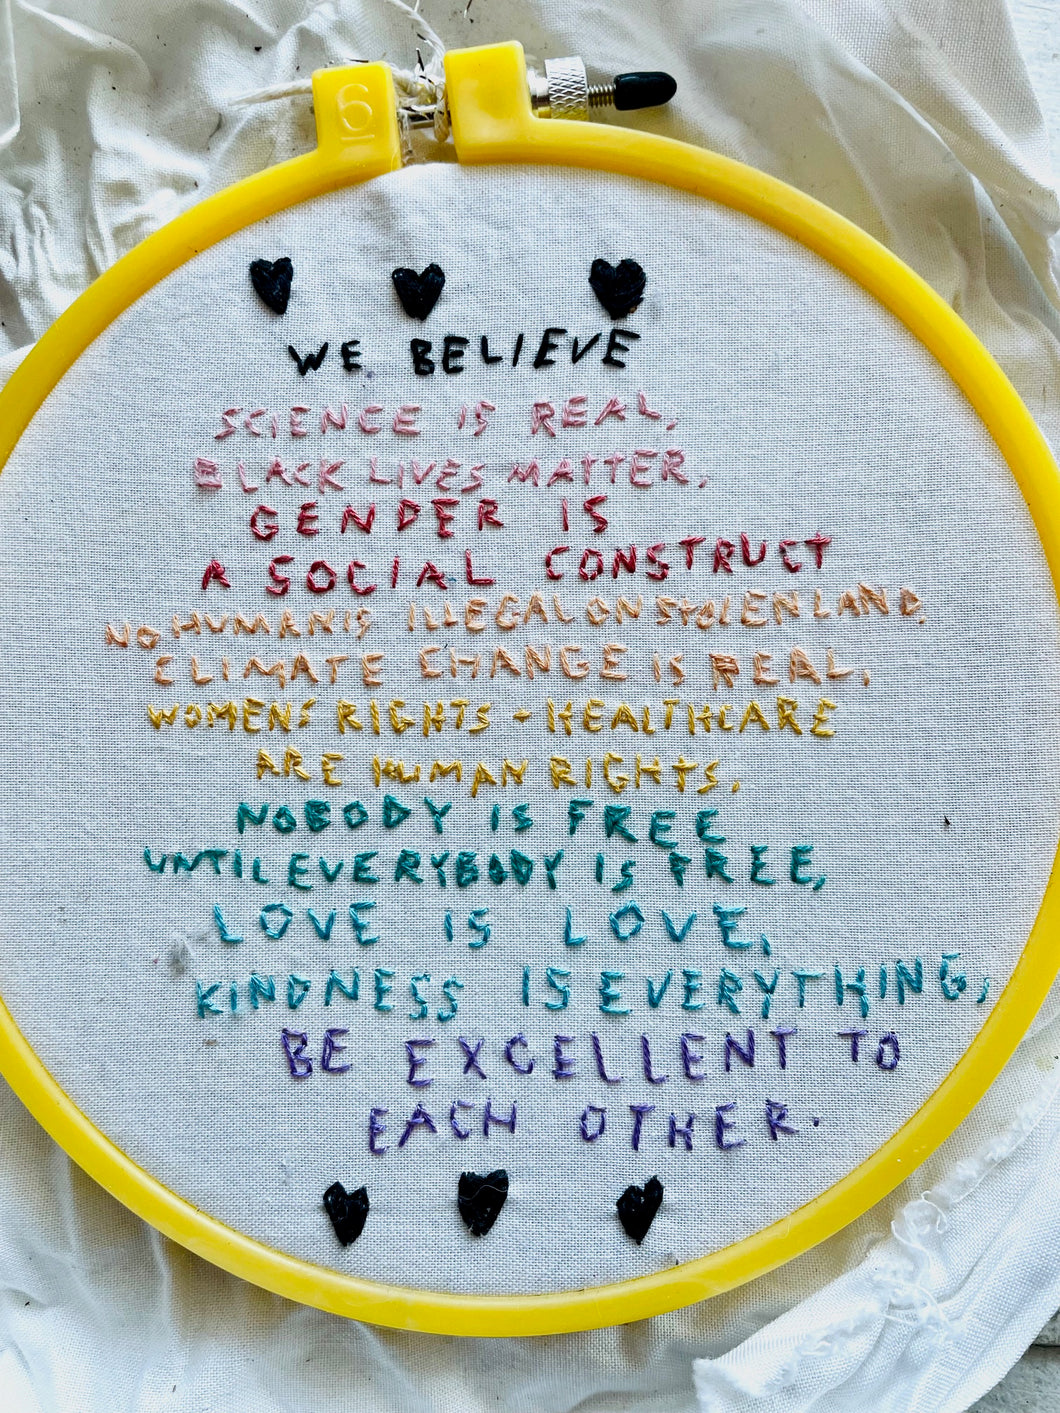 6
WE BELIEVE
SCIENCE IS REAL,
BLACK LIVES MATTER,
GENDER IS
A SOCIAL CONSTRUCT
NO HUMAN IS ILLEGAL ON STOLEN LAND,
CLIMATE CHANGE IS REAL,
WOMENS RIGHTS + HEALTHCARE
ARE HUMAN RIGHTS,
NOBODY IS FREE
UNTIL EVERYBODY IS FREE,
LOVE IS LOVE,
KINDNESS IS EVERYTHING,
BE EXCELLENT TO
EACH OTHER.